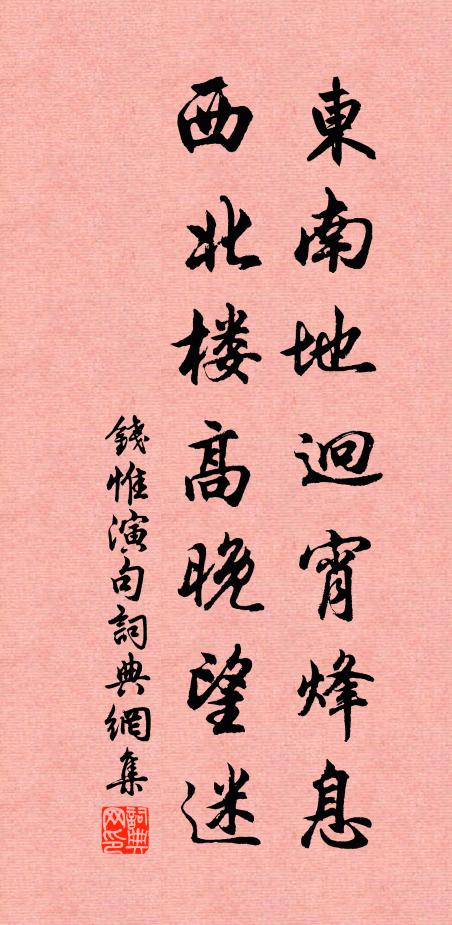 東南地迥宵烽息
西北楼高晚望迷
錢惟演句詞典網集
詞典网印